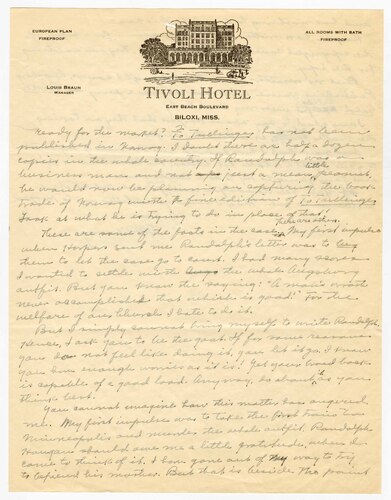 EUROPEAN PLAN
FIREPROOF
ALL ROOMS WITH BATH
FIREPROOF
LOUIS BRAUN
MANAGER
TIVOLI HOTEL
EAST BEACH BOULEVARD
BILOXI, MISS.
Ready for the market? To Tullinger has not been
published in Norway. I doubt there are half a dozen
copies in the whole country. If Randolph was a
business man and not just a mean little peanut,
he would now be planning on capturing the book
trade of Norway with a fine edition of To Tullinger.
Look at what he is trying to do in place of that,
These are some of the facts in the case. My first impulse
when Harpers sent me Randolph's letter was to beg
them to let the case go to court. I had many scores
I wanted to settle with the whole Augsburg
outfit. But you know the saying: "A man's wrath
never accomplished that which is good." For the
welfare of our Church I hate to do it.
But I simply cannot bring myself to write Randolph.
Hence, I ask you to be the goat. If for some reason
you do not feel like doing it, just let it go. I know
you have enough worries as it is. Yet your broad back
is capable of a good load. Anyway, do about it as you
think best.
You cannot imagine how this matter has angered
me. My first impulse was to take the first train for
Minneapolis and murder the whole outfit. Randolph
Haugan should owe me a little gratitude, when I
come to think of it. I have gone out of my way to try
to befriend his mother. But that is beside the point